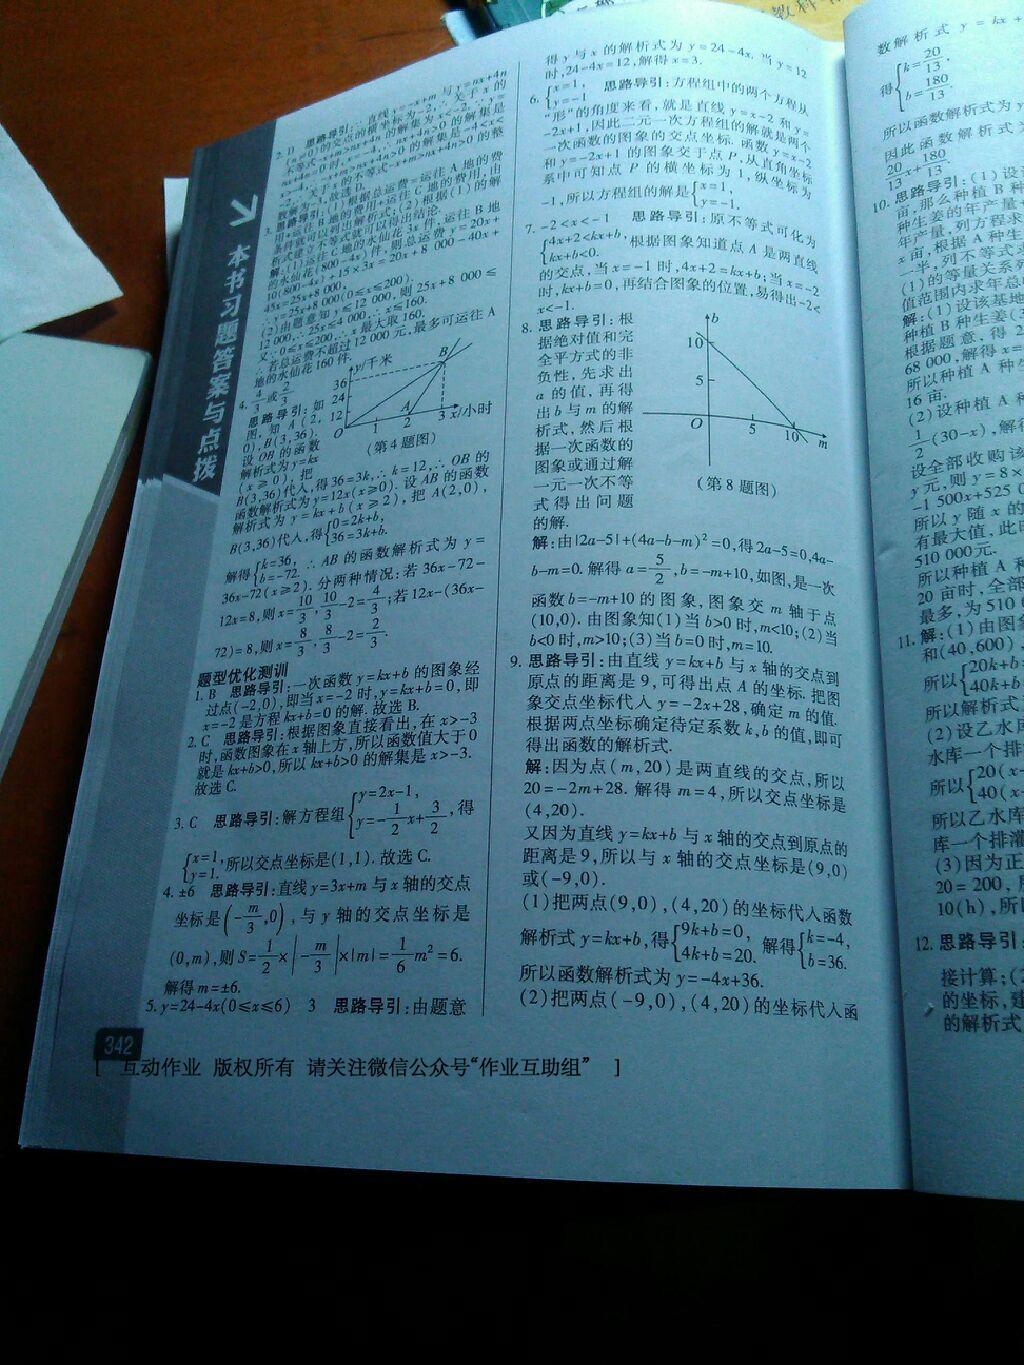 本书习题答案与点拨
2. D 思路导引:∵直线 y=-x+m 与 y=nx+4n
(n≠0)的交点的横坐标为-2,∴关于 x 的
不等式-x+m>nx+4n 的解集为 x<-2,∵y=
3. 思路导引:(1)根据总运费=运往 A 地的费
用+运往 B 地的费用+运往 C 地的费用,由
题意列式就可以得出解析式;(2)根据(1)的解
解:(1)运往 C 地的水仙花 3x 件,运往 B 地
的水仙花(800-4x)件,则总运费 y=20x+
10(800-4x)+15×3x=20x+8 000-40x+
45x=25x+8 000,
∴y=25x+8 000(0≤x≤200).
(2)由题意知 y≤12 000,则 25x+8 000≤
12 000,∴25x≤4 000,∴x≤160.
又∵0≤x≤200,∴x 最大取 160.
∴若总运费不超过 12 000 元,最多可运往 A
地的水仙花 160 件.
4. 4/3 或 2/3
思路导引:如
图,知 A(2,
0),B(3,36).
设 OB 的函数
解析式为 y=kx
(x≥0),把
y/千米
36
24
12
O 1 2 3 x/小时
A
B
(第 4 题图)
B(3,36)代入,得 36=3k,∴k=12,∴OB 的
函数解析式为 y=12x(x≥0).设 AB 的函数
解析式为 y=kx+b(x≥2),把 A(2,0),
B(3,36)代入,得{0=2k+b, 36=3k+b.
解得{k=36, b=-72. ∴AB 的函数解析式为 y=
36x-72(x≥2).分两种情况:若 36x-72-
12x=8,则 x=10/3,10/3-2=4/3;若 12x-(36x-
72)=8,则 x=8/3,8/3-2=2/3.
题型优化测训
1. B 思路导引:一次函数 y=kx+b 的图象经
过点(-2,0),即当 x=-2 时,y=kx+b=0,即
x=-2 是方程 kx+b=0 的解.故选 B.
2. C 思路导引:根据图象直接看出,在 x>-3
时,函数图象在 x 轴上方,所以函数值大于 0
就是 kx+b>0,所以 kx+b>0 的解集是 x>-3.
故选 C.
3. C 思路导引:解方程组{y=2x-1, y=-1/2x+3/2, 得
{x=1, y=1. 所以交点坐标是(1,1).故选 C.
4. ±6 思路导引:直线 y=3x+m 与 x 轴的交点
坐标是(-m/3,0),与 y 轴的交点坐标是
(0,m),则 S=1/2×|-m/3|×|m|=1/6m²=6.
解得 m=±6.
5. y=24-4x(0≤x≤6) 3 思路导引:由题意
得 y 与 x 的解析式为 y=24-4x.当 y=12
时,24-4x=12,解得 x=3.
6. {x=1, y=-1 思路导引:方程组中的两个方程从
“形”的角度来看,就是直线 y=x-2 和 y=
-2x+1,因此二元一次方程组的解就是两个
一次函数的图象的交点坐标.函数 y=x-2
和 y=-2x+1 的图象交于点 P,从直角坐标
系中可知点 P 的横坐标为 1,纵坐标为
-1,所以方程组的解是{x=1, y=-1.
7. -2<x<-1 思路导引:原不等式可化为
{4x+2<kx+b, kx+b<0. 根据图象知道点 A 是两直线
的交点,当 x=-1 时,4x+2=kx+b;当 x=-2
时,kx+b=0,再结合图象的位置,易得出-2<
x<-1.
8. 思路导引:根
据绝对值和完
全平方式的非
负性,先求出
a 的值,再得
出 b 与 m 的解
析式,然后根
据一次函数的
图象或通过解
一元一次不等
式得出问题
的解.
b
10
5
O 5 10 m
(第 8 题图)
解:由|2a-5|+(4a-b-m)²=0,得 2a-5=0,4a-
b-m=0.解得 a=5/2,b=-m+10,如图,是一次
函数 b=-m+10 的图象,图象交 m 轴于点
(10,0).由图象知(1)当 b>0 时,m<10;(2)当
b<0 时,m>10;(3)当 b=0 时,m=10.
9. 思路导引:由直线 y=kx+b 与 x 轴的交点到
原点的距离是 9,可得出点 A 的坐标.把图
象交点坐标代入 y=-2x+28,确定 m 的值.
根据两点坐标确定待定系数 k,b 的值,即可
得出函数的解析式.
解:因为点(m,20)是两直线的交点,所以
20=-2m+28.解得 m=4,所以交点坐标是
(4,20).
又因为直线 y=kx+b 与 x 轴的交点到原点的
距离是 9,所以与 x 轴的交点坐标是(9,0)
或(-9,0).
(1)把两点(9,0),(4,20)的坐标代入函数
解析式 y=kx+b,得{9k+b=0, 4k+b=20. 解得{k=-4, b=36.
所以函数解析式为 y=-4x+36.
(2)把两点(-9,0),(4,20)的坐标代入函
342
[ 互动作业 版权所有 请关注微信公众号“作业互助组” ]
数解析式 y=kx+
得{k=20/13, b=180/13.
所以函数解析式为 y
因此函数解析式
20/13x+180/13.
10. 思路导引:(1)设
亩,那么种植 B 种
种生姜的年产量+
年产量,列方程求
x 亩,根据 A 种生
一半,列不等式求
(1)的等量关系列
值范围内求年总
解:(1)设该基地
种植 B 种生姜(3
根据题意,得 2
68 000,解得 x=
所以种植 A 种生
16 亩.
(2)设种植 A 种
1/2(30-x),解得
设全部收购该
y 元,则 y=8×
-1 500x+525 0
所以 y 随 x 的
有最大值,此时
510 000 元.
所以种植 A 种
20 亩时,全部
最多,为 510 0
11. 解:(1)由图象
和(40,600),
所以{20k+b= 40k+b=
所以解析式
(2)设乙水库
水库一个排
所以{20(x- 40(x-
所以乙水库
库一个排灌
(3)因为正
20=200,
10(h),所以
12. 思路导引:
接计算;(2
的坐标,建
的解析式